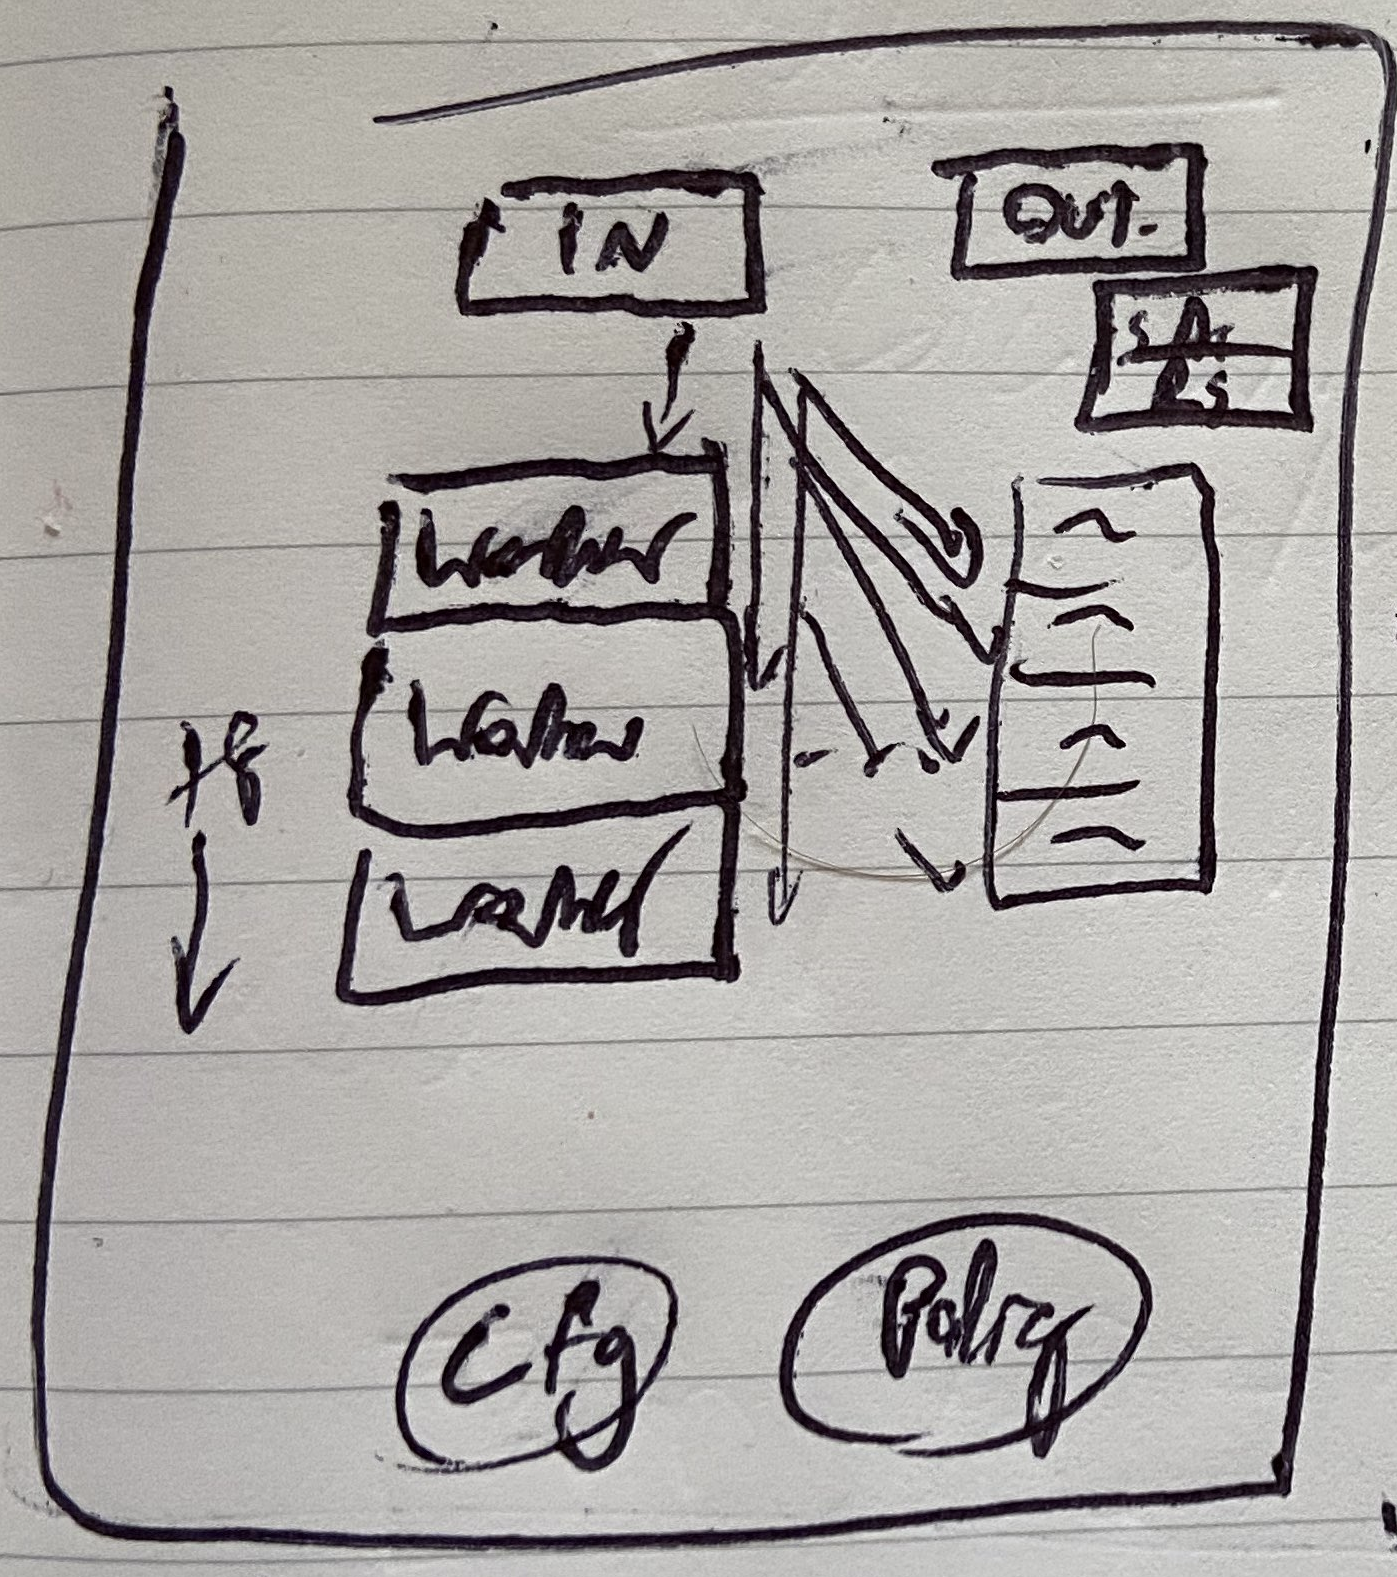 IN
OUT.
Worker
Worker
Worker
Cfg
Policy